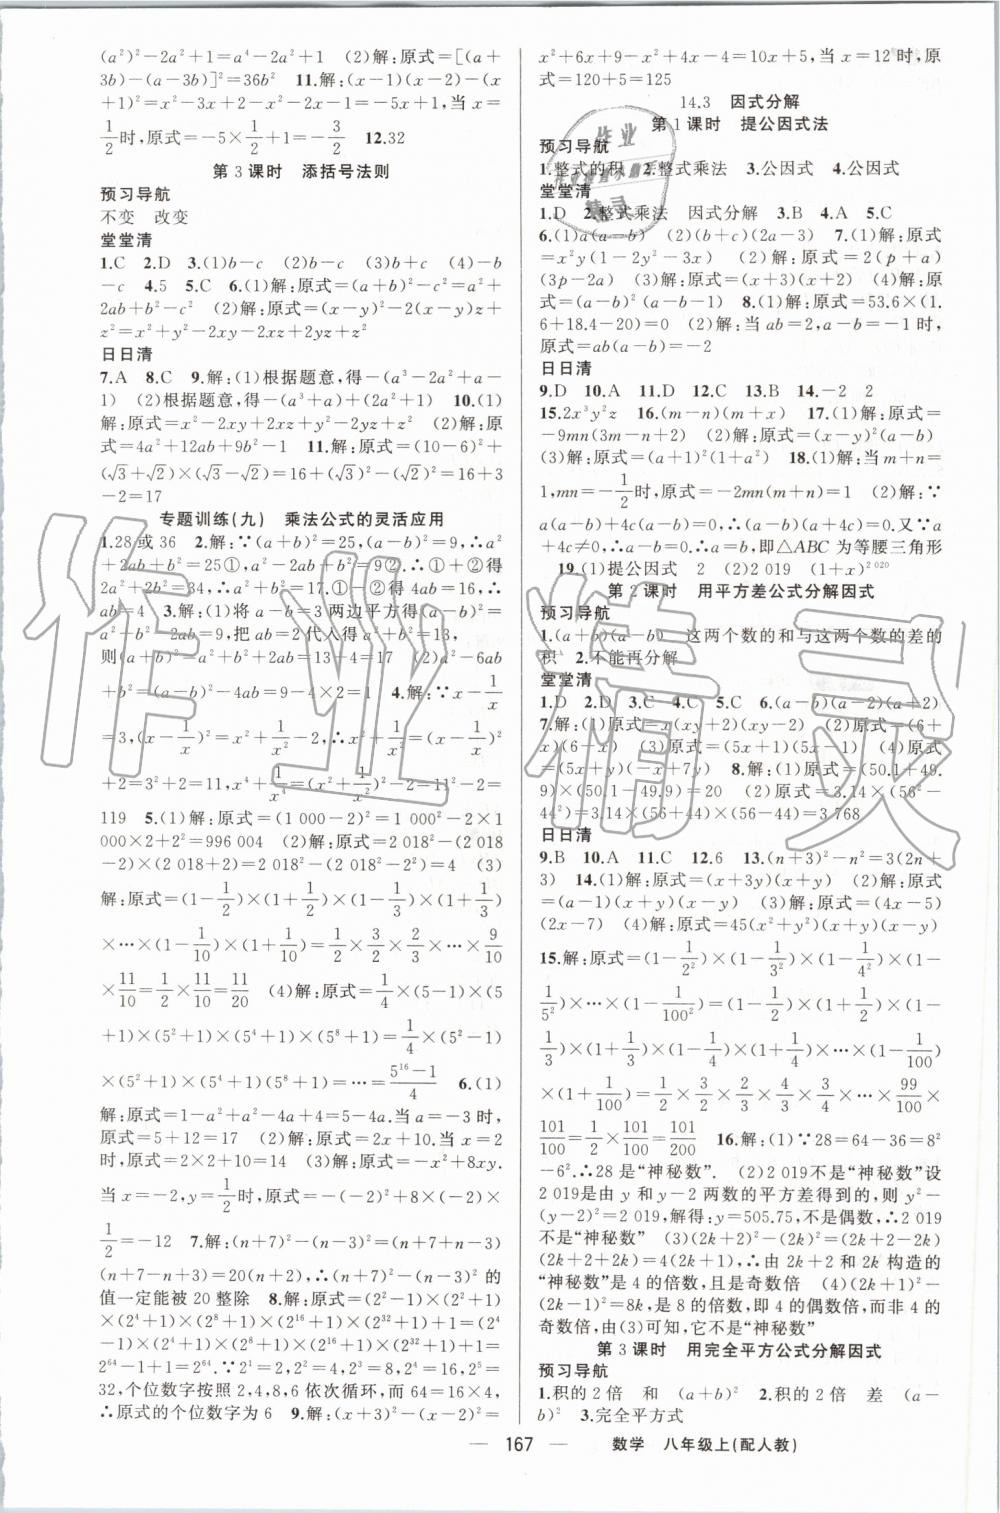 (a²)²-2a²+1=a⁴-2a²+1　(2)解:原式=[(a+
3b)-(a-3b)]²=36b²　11.解:(x-1)(x-2)-(x
+1)²=x²-3x+2-x²-2x-1=-5x+1,当 x=
1/2时,原式=-5×1/2+1=-3/2　12.32
第 3 课时　添括号法则
预习导航
不变　改变
堂堂清
1.C　2.D　3.(1)b-c　(2)b-c　(3)b+c　(4)-b
-c　4.5　5.C　6.(1)解:原式=(a+b)²-c²=a²+
2ab+b²-c²　(2)解:原式=(x-y)²-2(x-y)z+
z²=x²+y²-2xy-2xz+2yz+z²
日日清
7.A　8.C　9.解:(1)根据题意,得-(a³-2a²+a-
1)　(2)根据题意,得-(a³+a)+(2a²+1)　10.(1)
解:原式=x²-2xy+2xz+y²-2yz+z²　(2)解:原
式=4a²+12ab+9b²-1　11.解:原式=(10-6)²+
(√3+√2)×(√3-√2)=16+(√3)²-(√2)²=16+3
-2=17
专题训练(九)　乘法公式的灵活应用
1.28 或 36　2.解:∵(a+b)²=25,(a-b)²=9,∴a²
+2ab+b²=25①,a²-2ab+b²=9②.∴①+②得
2a²+2b²=34,∴a²+b²=17.∴①-②得 4ab=16,∴
ab=4　3.解:(1)将 a-b=3 两边平方得(a-b)²=
a²+b²-2ab=9,把 ab=2 代入得 a²+b²=13,
则(a+b)²=a²+b²+2ab=13+4=17　(2)a²-6ab
+b²=(a-b)²-4ab=9-4×2=1　4.解:∵x-1/x
=3,(x-1/x)²=x²+1/x²-2,∴x²+1/x²=(x-1/x)²
+2=3²+2=11,x⁴+1/x⁴=(x²+1/x²)²-2=11²-2=
119　5.(1)解:原式=(1 000-2)²=1 000²-2×1
000×2+2²=996 004　(2)解:原式=2 018²-(2 018
-2)×(2 018+2)=2 018²-(2 018²-2²)=4　(3)
解:原式=(1-1/2)×(1+1/2)×(1-1/3)×(1+1/3)
×…×(1-1/10)×(1+1/10)=1/2×3/2×2/3×…×9/10
×11/10=1/2×11/10=11/20　(4)解:原式=1/4×(5-1)×(5
+1)×(5²+1)×(5⁴+1)×(5⁸+1)=1/4×(5²-1)
×(5²+1)×(5⁴+1)(5⁸+1)=…=(5¹⁶-1)/4　6.(1)
解:原式=1-a²+a²-4a+4=5-4a.当 a=-3 时,
原式=5+12=17　(2)解:原式=2x+10.当 x=2
时,原式=2×2+10=14　(3)解:原式=-x²+8xy.
当 x=-2,y=1/2时,原式=-(-2)²+8×(-2)×
1/2=-12　7.解:(n+7)²-(n-3)²=(n+7+n-3)
(n+7-n+3)=20(n+2),∴(n+7)²-(n-3)² 的
值一定能被 20 整除　8.解:原式=(2²-1)×(2²+1)
×(2⁴+1)×(2⁸+1)×(2¹⁶+1)×(2³²+1)+1=(2⁴
-1)×(2⁴+1)×(2⁸+1)×(2¹⁶+1)×(2³²+1)+1=
2⁶⁴-1+1=2⁶⁴.∵2¹=2,2²=4,2³=8,2⁴=16,2⁵=
32,个位数字按照 2,4,8,6 依次循环,而 64=16×4,
∴原式的个位数字为 6　9.解:(x+3)²-(x-2)(x+2)=
x²+6x+9-x²+4=10x+5,当 x=12 时,原
式=120+5=125
14.3　因式分解
第 1 课时　提公因式法
预习导航
1.整式的积　2.整式乘法　3.公因式　4.公因式
堂堂清
1.D　2.整式乘法　因式分解　3.B　4.A　5.C
6.(1)a(a-b)　(2)(b+c)(2a-3)　7.(1)解:原式
=x²y(1-2y²-3x)　(2)解:原式=2(p+a)
(3p-2a)　(3)解:原式=(x+3)(x+2)　(4)解:原
式=(a-b)(5-a)(a-b-1)　8.(1)解:原式=53.6×(1.
6+18.4-20)=0　(2)解:当 ab=2,a-b=-1 时,
原式=ab(a-b)=-2
日日清
9.D　10.A　11.D　12.C　13.B　14.-2　2
15.2x³y²z　16.(m-n)(m+x)　17.(1)解:原式=
-9mn(3m-n+2)　(2)解:原式=(x-y)²(a-b)
(3)解:原式=(a+1)²(1+a²)　18.(1)解:当 m+n=
1,mn=-1/2时,原式=-2mn(m+n)=1　(2)解:∵
a(a-b)+4c(a-b)=0,∴(a-b)(a+4c)=0.又∵a
+4c≠0,∴a-b=0,∴a=b,即△ABC 为等腰三角形
19.(1)提公因式　2　(2)2 019　(1+x)²⁰²⁰
第 2 课时　用平方差公式分解因式
预习导航
1.(a+b)(a-b)　这两个数的和与这两个数的差的
积　2.不能再分解
堂堂清
1.D　2.D　3.C　4.C　5.C　6.(a-b)(a-2)(a+2)
7.解:(1)原式=x(xy+2)(xy-2)　(2)原式=(6+
x)(6-x)　(3)原式=(5x+1)(5x-1)　(4)原式
=(5x+y)(-x+7y)　8.解:(1)原式=(50.1+49.
9)×(50.1-49.9)=20　(2)原式=3.14×(56²-
44²)=3.14×(56+44)×(56-44)=3 768
日日清
9.B　10.A　11.C　12.6　13.(n+3)²-n²=3(2n+
3)　14.(1)解:原式=(x+3y)(x-y)　(2)解:原式
=(a-1)(x+y)(x-y)　(3)解:原式=(4x-5)
(2x-7)　(4)解:原式=45(x²+y²)(x+y)(x-y)
15.解:原式=(1-1/2²)×(1-1/3²)×(1-1/4²)×(1-
1/5²)×…×(1-1/100²)=(1-1/2)×(1+1/2)×(1-
1/3)×(1+1/3)×(1-1/4)×(1+1/4)×…×(1-1/100)
×(1+1/100)=1/2×3/2×2/3×4/3×3/4×…×99/100×
101/100=1/2×101/100=101/200　16.解:(1)∵28=64-36=8²
-6².∴28 是“神秘数”.　(2)2 019不是“神秘数”设
2 019是由 y 和 y-2 两数的平方差得到的,则 y²-
(y-2)²=2 019,解得:y=505.75,不是偶数,∴2 019
不是“神秘数”　(3)(2k+2)²-(2k)²=(2k+2-2k)
(2k+2+2k)=4(2k+1),∴由 2k+2 和 2k 构造的
“神秘数”是 4 的倍数,且是奇数倍　(4)(2k+1)²-
(2k-1)²=8k,是 8 的倍数,即 4 的偶数倍,而非 4 的
奇数倍,由(3)可知,它不是“神秘数”
第 3 课时　用完全平方公式分解因式
预习导航
1.积的 2 倍　和　(a+b)²　2.积的 2 倍　差　(a-
b)²　3.完全平方式
— 167 —　数学　八年级上(配人教)
作业精灵